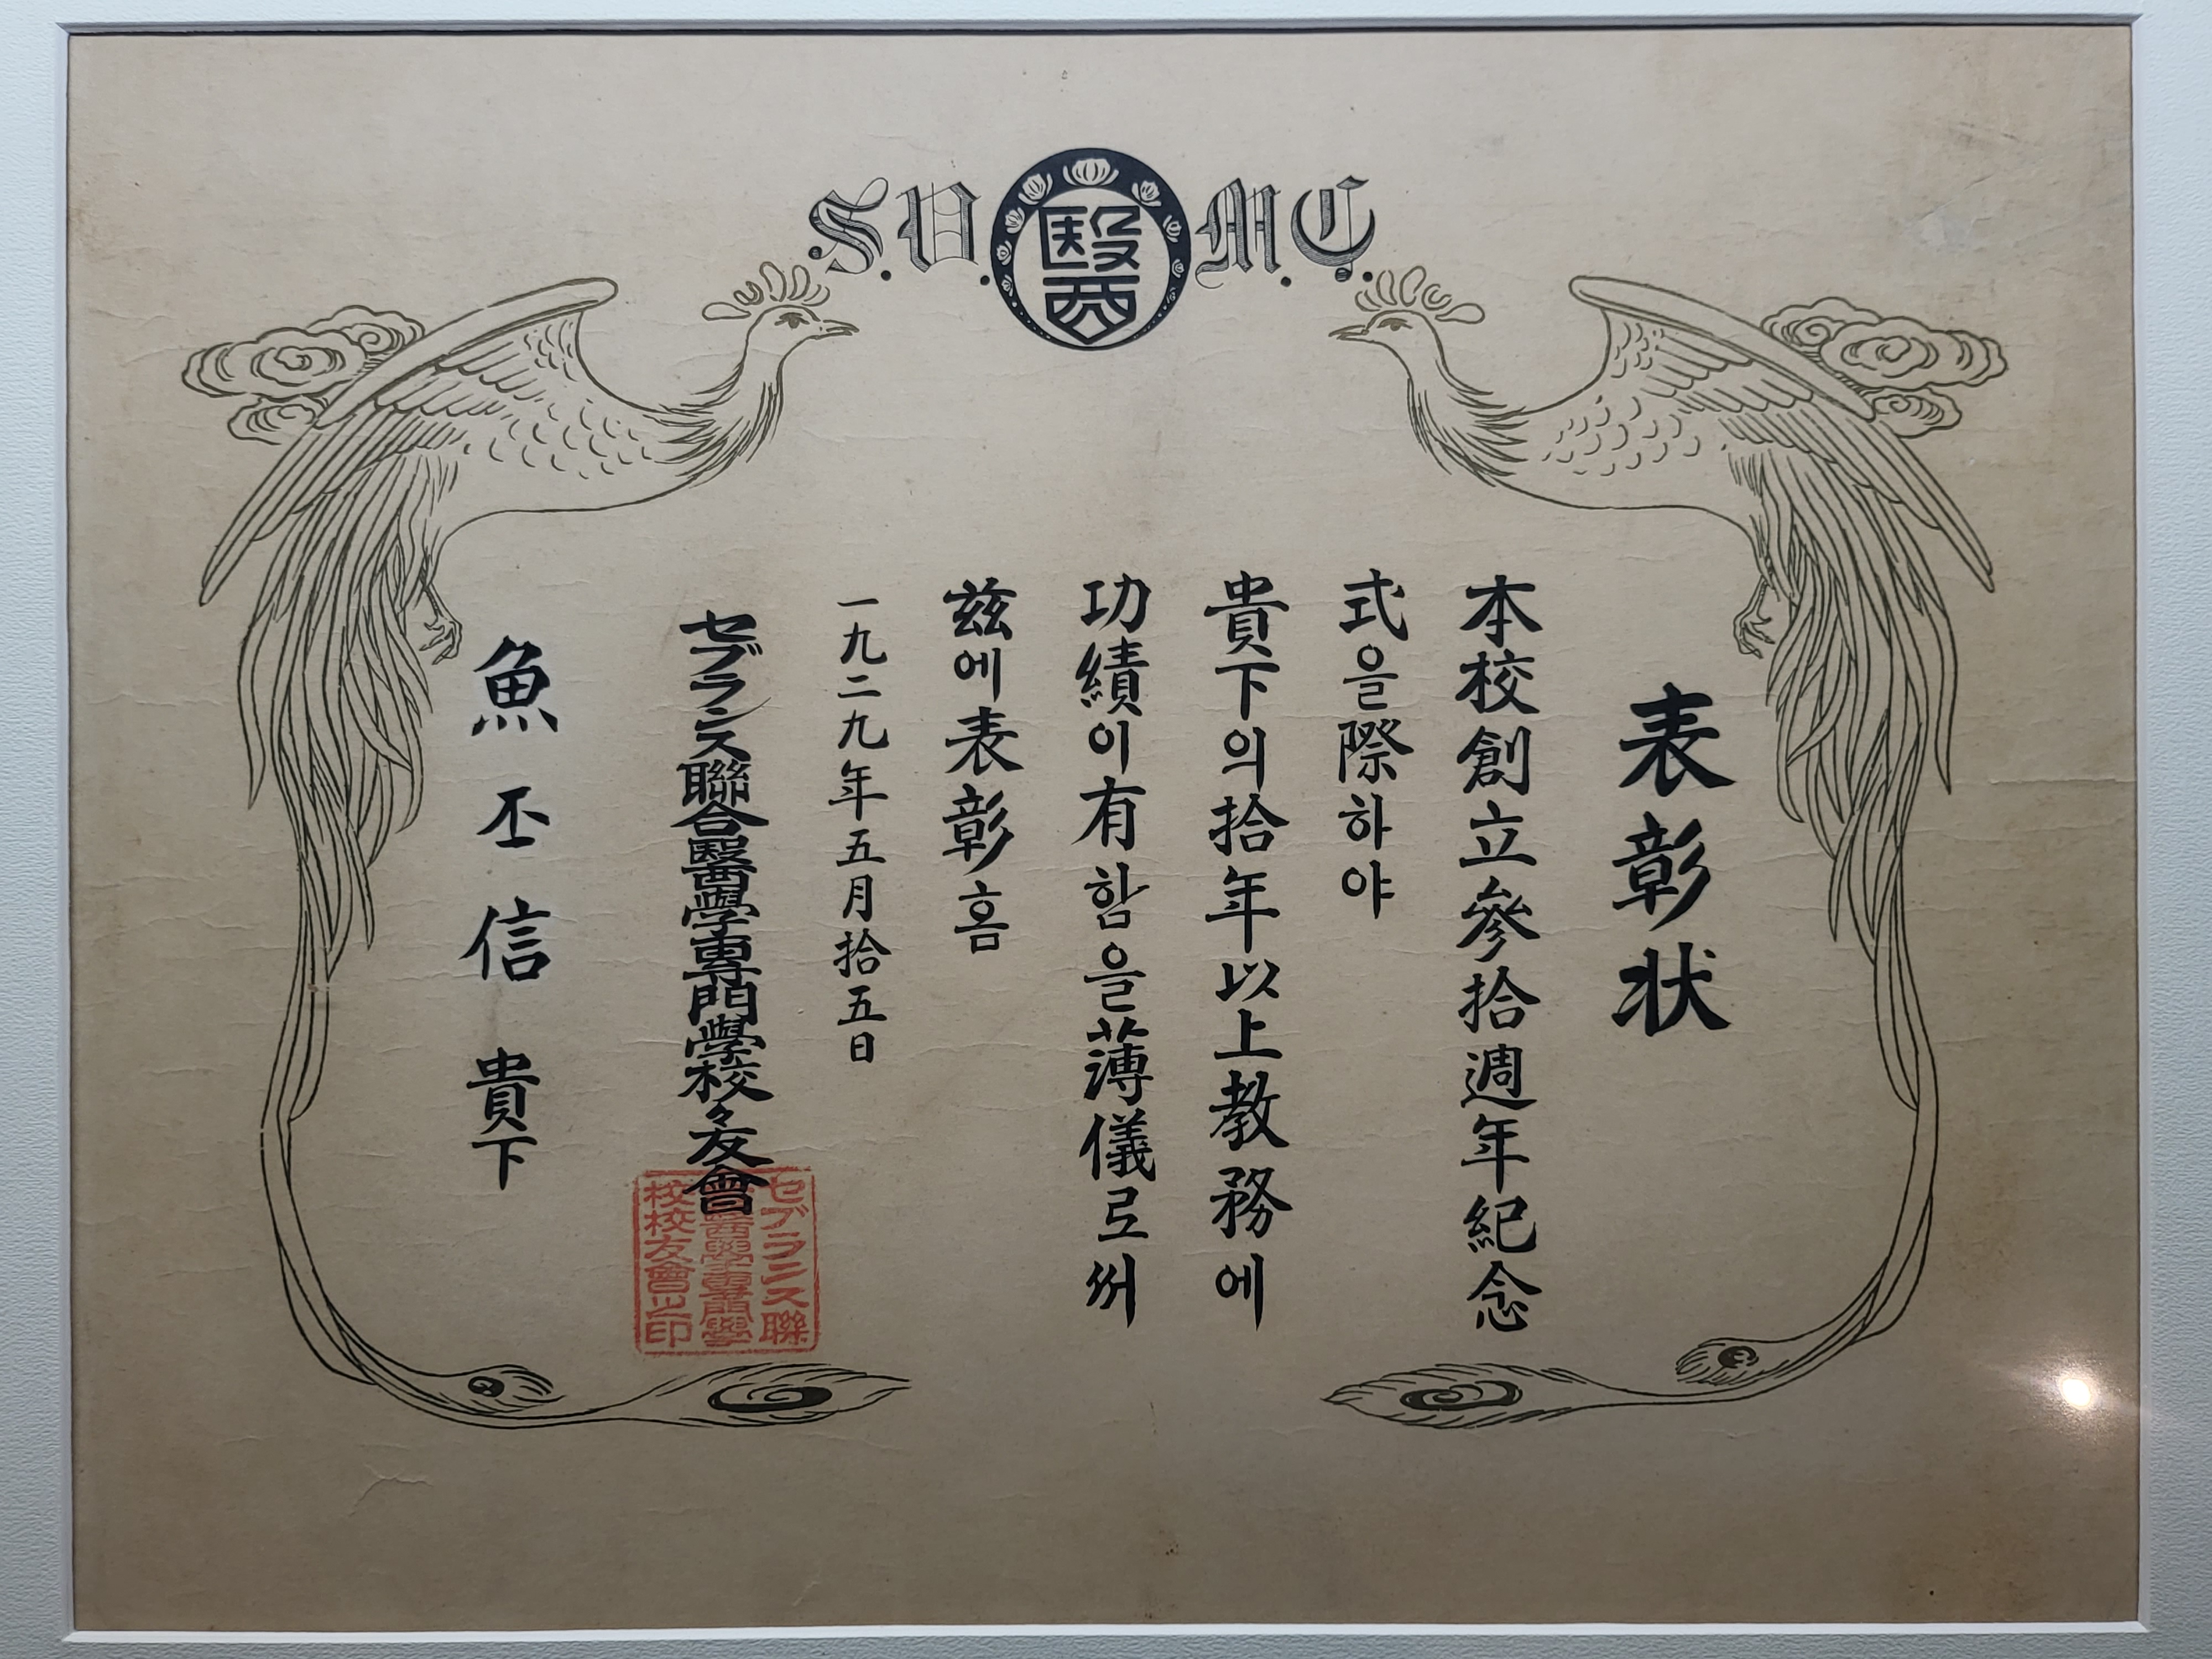 S. U. 醫 M. C.
表彰狀
本校創立參拾週年紀念
式을際하야
貴下의拾年以上教務에
功績이有함을薄儀로써
玆에表彰홈
一九二九年五月拾五日
セブランス聯合醫學專門學校々友會
魚丕信 貴下
セブランス聯
合醫學專門學
校校友會之印